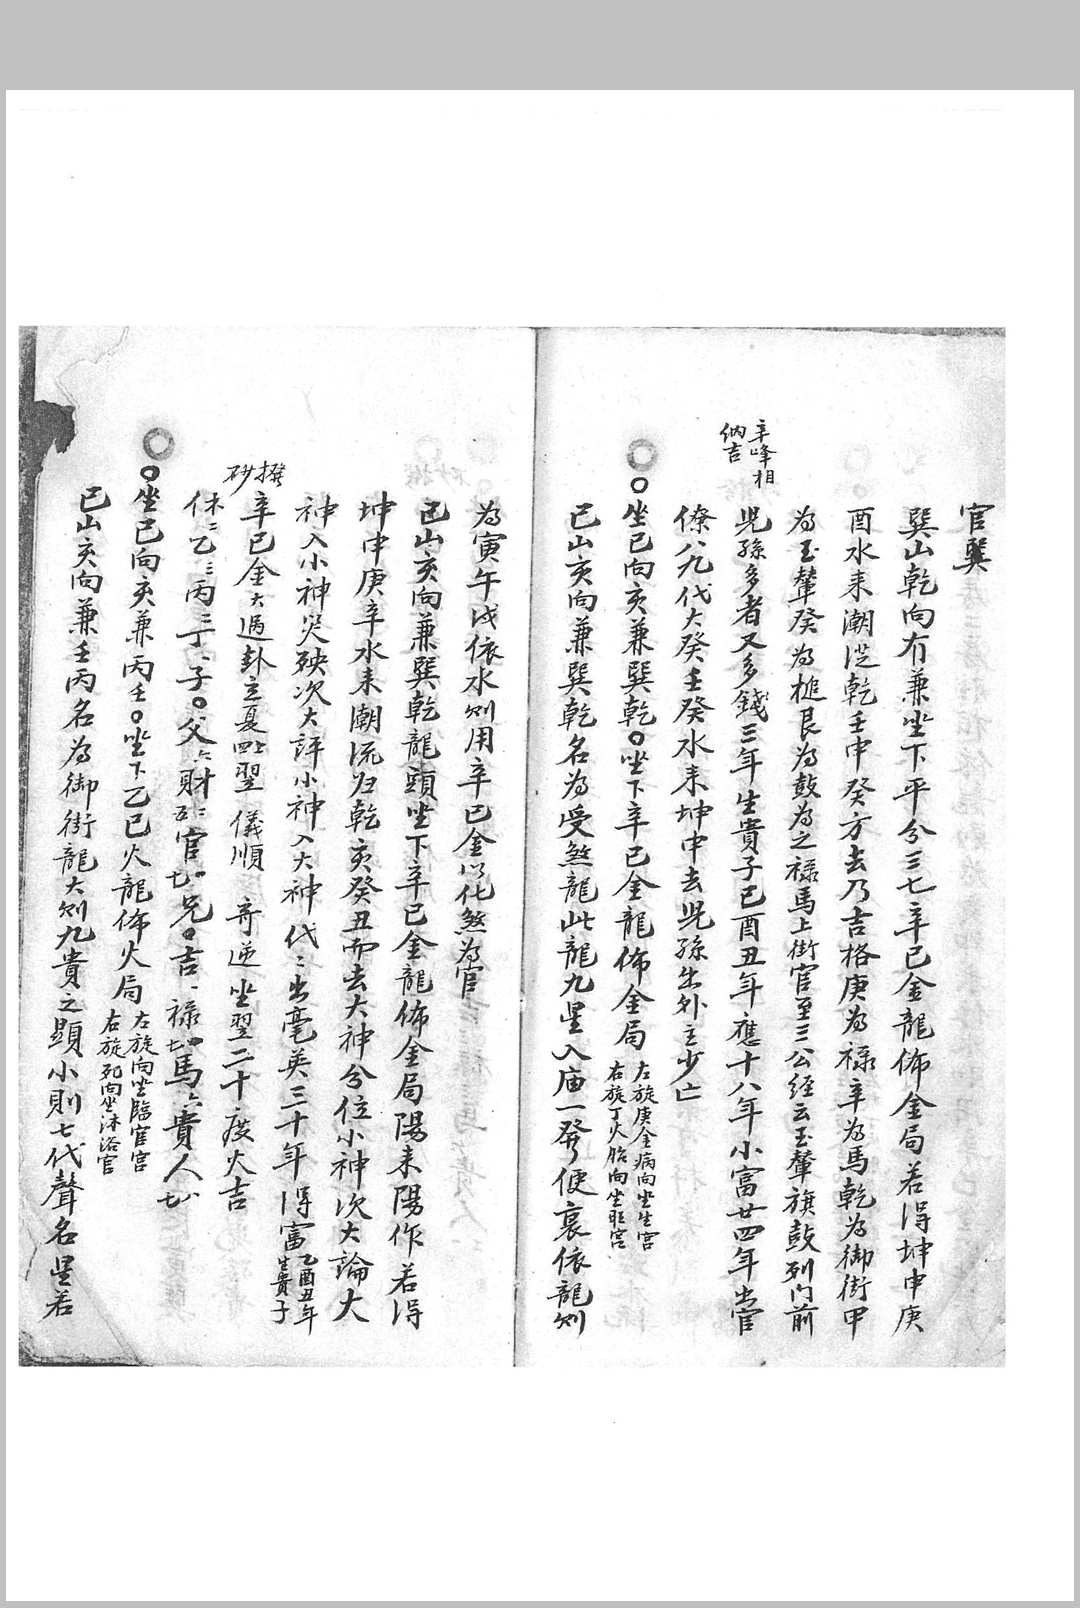 官巽
巽山乾向冇兼坐下平分三七辛巳金龍佈金局若得坤申庚
酉水来潮従乾壬申癸方去乃吉格庚為禄辛為馬乾為御街甲
為玉輦癸為槌艮為鼓為之禄馬上街官至三公経云玉輦旗鼓列门前
辛峰相
納吉
児孫多者又多錢三年生貴子巳酉丑年應十八年小富廿四年出官
僚八九代大癸壬癸水来坤申去児孫出外主少亡
○坐巳向亥兼巽乾○坐下辛巳金龍佈金局
左旋庚金病向坐生宫
右旋丁火胎向坐旺宫
巳山亥向兼巽乾名為受煞龍此龍九星入庙一發便衰依龍则
為寅午戌依水则用辛巳金以化煞為官
巳山亥向兼巽乾龍頭坐下辛巳金龍佈金局陽来陽作若得
坤申庚辛水来潮流归乾亥癸丑而去大神兮位小神次大論大
神入小神災殃次大評小神入大神代〻出毫英三十年得富
乙酉丑年
生貴子
撥
砂
辛巳金大過卦立夏四 翌 儀順 奇逆坐翌二十度火吉
休二乙三丙三丁、子○父六財 二官 兄○吉、禄 馬六貴人
○坐巳向亥兼丙壬○坐下乙巳火龍佈火局
左旋向坐臨官宫
右旋死向坐沐浴官
巳山亥向兼壬丙名為御街龍大则九貴之顯小則七代聲名星若